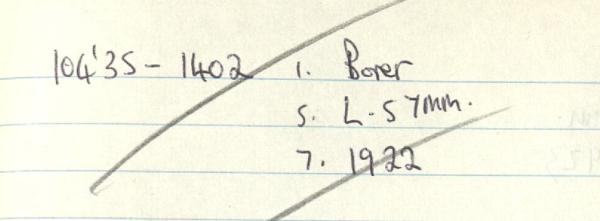 104'35 - 1402 1. Borer
5. L. 57mm.
7. 1922